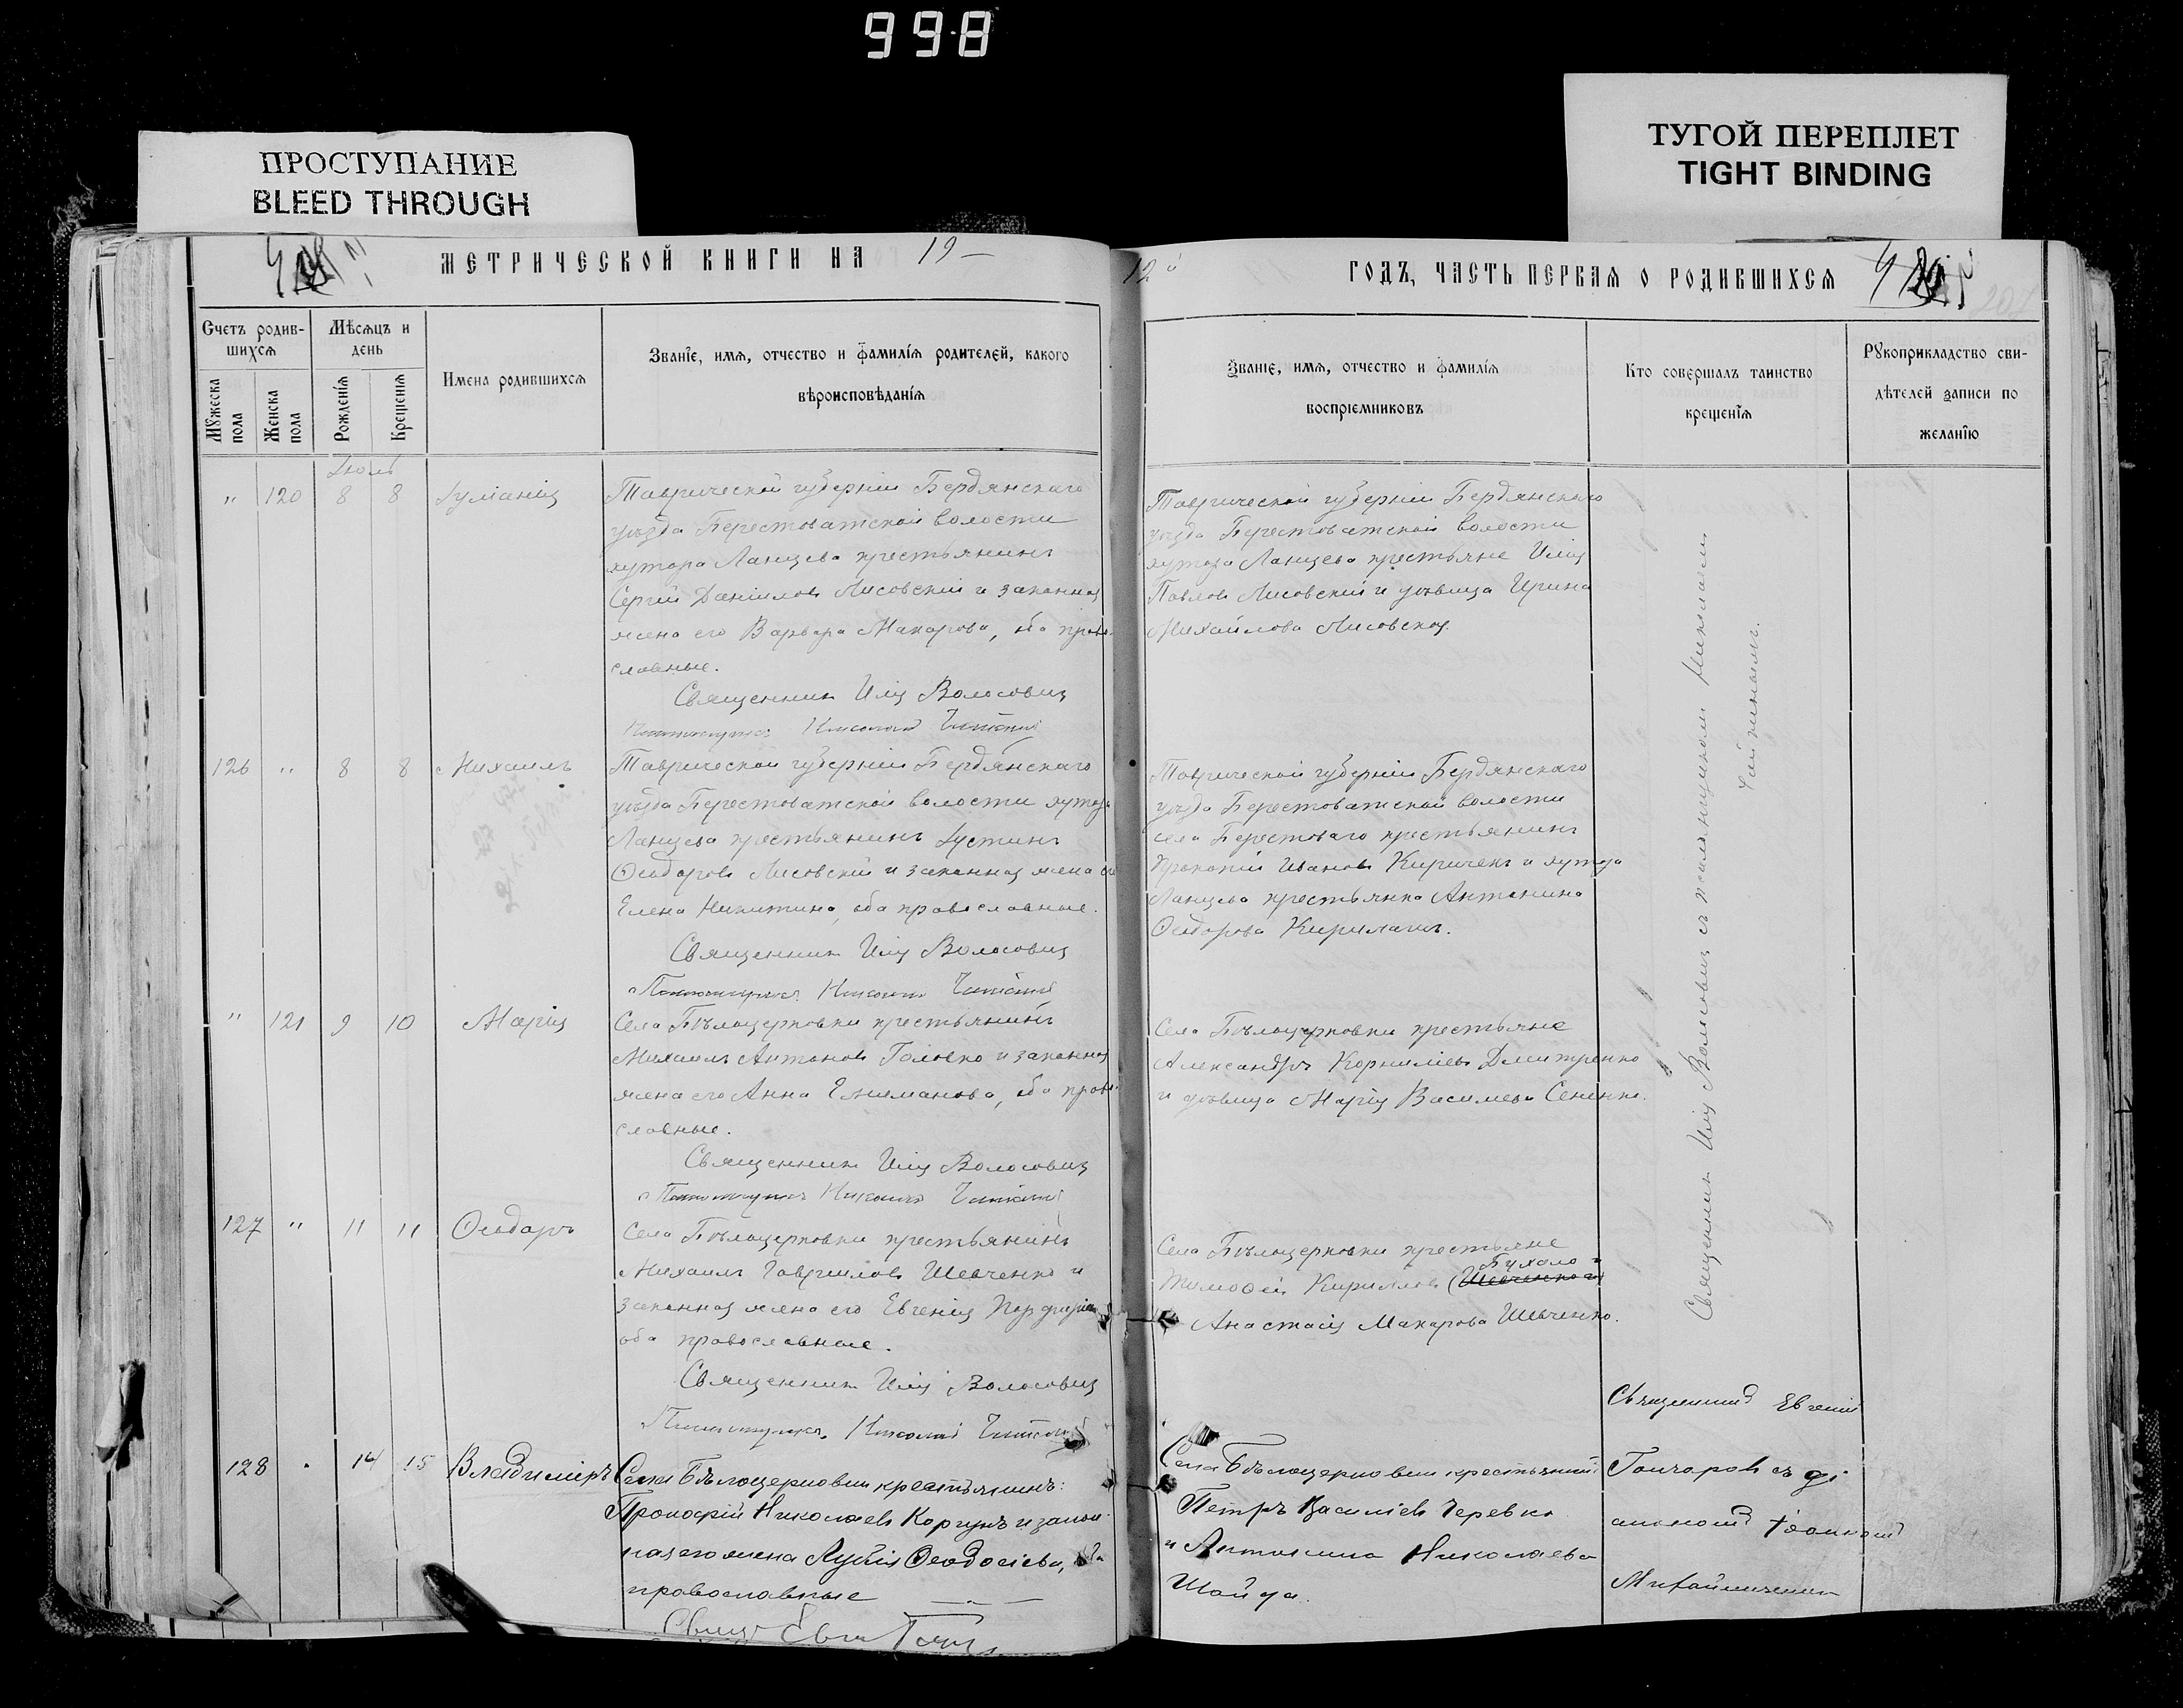 998
ПРОСТУПАНИЕ
BLEED THROUGH
ТУГОЙ ПЕРЕПЛЕТ
TIGHT BINDING
МЕТРИЧЕСКОЙ КНИГИ НА 19
12 ГОДЪ, ЧАСТЬ ПЕРВАЯ О РОДИВШИХСЯ
Счетъ родив-
шихся
Мужеска пола
Женска пола
Мѣсяцъ и
день
Рожденія
Крещенія
Имена родившихся
Званіе, имя, отчество и фамилія родителей, какого
вѣроисповѣданія
Званіе, имя, отчество и фамилія
воспріемниковъ
Кто совершалъ таинство
крещенія
Рукоприкладство сви-
дѣтелей записи по
желанію
Іюль
" 120 8 8 Іуліанія
Таврической губерніи Бердянскаго
уѣзда Берестоватской волости
хутора Ланцева крестьянинъ
Сергій Даніиловъ Лисовскій и законная
жена его Варвара Макарова, оба право-
славные.
Священникъ Илія Волосовичъ
Николай
Таврической губерніи Бердянскаго
уѣзда Берестоватской волости
хутора Ланцева крестьяне Илія
Павловъ Лисовскій и дѣвица Ирина
Михайлова Лисовская.
126 " 8 8 Михаилъ
Таврической губерніи Бердянскаго
уѣзда Берестоватской волости хутора
Ланцева крестьянинъ Іустинъ
Ѳеодоровъ Лисовскій и законная жена его
Елена Никитина, оба православные.
Священникъ Илія Волосовичъ
Николай
Таврической губерніи Бердянскаго
уѣзда Берестоватской волости
села Берестоваго крестьянинъ
Прокопій Ивановъ Кириченъ и хутора
Ланцева крестьянка Антонина
Ѳеодорова
" 121 9 10 Марія
Села Бѣлоцерковки крестьянинъ
Михаилъ Антоновъ Головко и законная
жена его Анна, оба право-
славные.
Священникъ Илія Волосовичъ
Николай
Села Бѣлоцерковки крестьяне
Александръ Корниліевъ Дмитренко
и дѣвица Марія Василіева Сененко.
127 " 11 11 Ѳеодоръ
Села Бѣлоцерковки крестьянинъ
Михаилъ Гавріиловъ Шевченко и
законная жена его Евгенія Порфиріева
оба православные.
Священникъ Илія Волосовичъ
Николай
Села Бѣлоцерковки крестьяне
Тимофей Кирилловъ
Анастасія Макарова Шевченко.
Священникъ Илія Волосовичъ съ псаломщикомъ Николаемъ
128 14 15 Владиміръ
Села Бѣлоцерковки крестьянинъ
Прокофій Николаевъ Коргунъ и закон-
ная его жена Ѳеодосіева, оба
православные
Села Бѣлоцерковки крестьянинъ
Петръ Василіевъ Черевко
и Антонина Николаева
Шайда.
Священникъ Евгеній
Гончаровъ съ ді
акономъ Іоанномъ